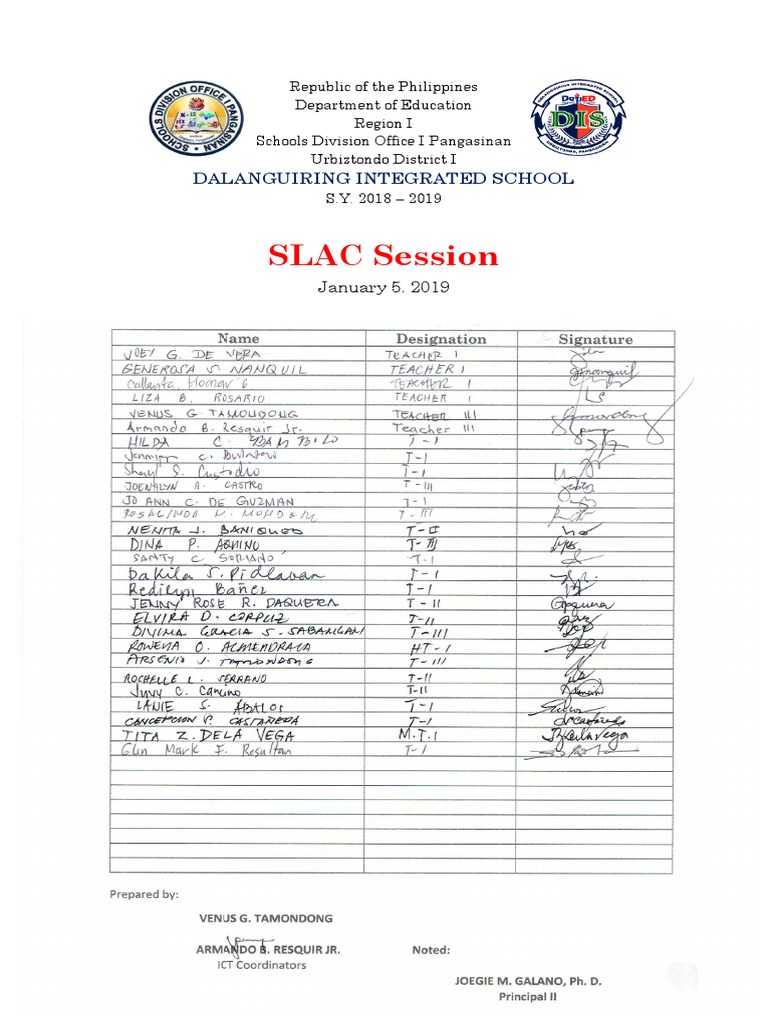 Republic of the Philippines
Department of Education
Region I
Schools Division Office I Pangasinan
Urbiztondo District I
DALANGUIRING INTEGRATED SCHOOL
S.Y. 2018 – 2019
SCHOOLS DIVISION OFFICE I PANGASINAN
DepED
DIS
SLAC Session
January 5, 2019
Name Designation Signature
JOEY G. DE VERA TEACHER I
GENEROSA S. NANQUIL TEACHER I
Callanta, Eleonor G. TEACHER I
LIZA B. ROSARIO TEACHER I
VENUS G. TAMOUDONG TEACHER III
Armando B. Resquir Jr. Teacher III
HILDA C. BAMBILO T-I
C. T-I
Sheryl S. Custodio T-I
JOENALYN A. CASTRO T-III
JO ANN C. DE GUZMAN T-I
ROSALINDA M. T-III
NENITA J. BANIQUED T-II
DINA P. AQUINO T-III
SANTY C. SORIANO T-I
Dakila S. Pidlaoan T-I
Redilyn Bañez T-I
JENNY ROSE R. DAQUERA T-II
ELVIRA D. CORPUZ T-II
DIVINA GRACIA S. SABANGAN T-III
ROWENA O. ALMENDRALA HT-I
ARSENIO J. TAMONDONG T-III
ROCHELLE L. SERRANO T-II
Juny C. Camino T-II
LANIE S. ABALOS T-I
CONCEPCION P. CASTAÑEDA T-I
TITA Z. DELA VEGA M.T.I
Glen Mark F. Resultan T-I
Prepared by:
VENUS G. TAMONDONG
ARMANDO B. RESQUIR JR. Noted:
ICT Coordinators
JOEGIE M. GALANO, Ph. D.
Principal II